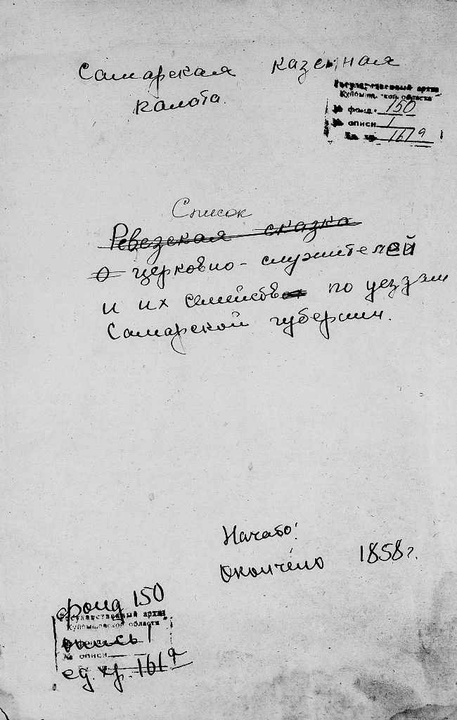 Самарская казенная
палата.
Государственный архив
Куйбышевской области
№ фонд. 150
№ описи 1
161а
Список
Ревезская сказка
о церковно-служителей
и их семейств по уездам
Самарской губернии.
Начато:
Окончено 1858 г.
фонд 150
Государственный архив
Куйбышевской области
опись 1
№ описи
ед. хр. 161а